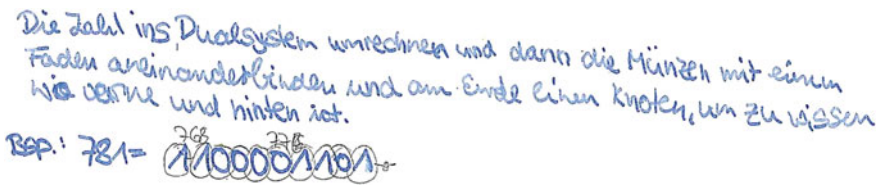 Die Zahl ins Dualsystem umrechnen und dann die Münzen mit einem
Faden aneinanderbinden und am Ende einen Knoten, um zu wissen
wo vorne und hinten ist.
768 776
Bsp.: 781= 1100001101